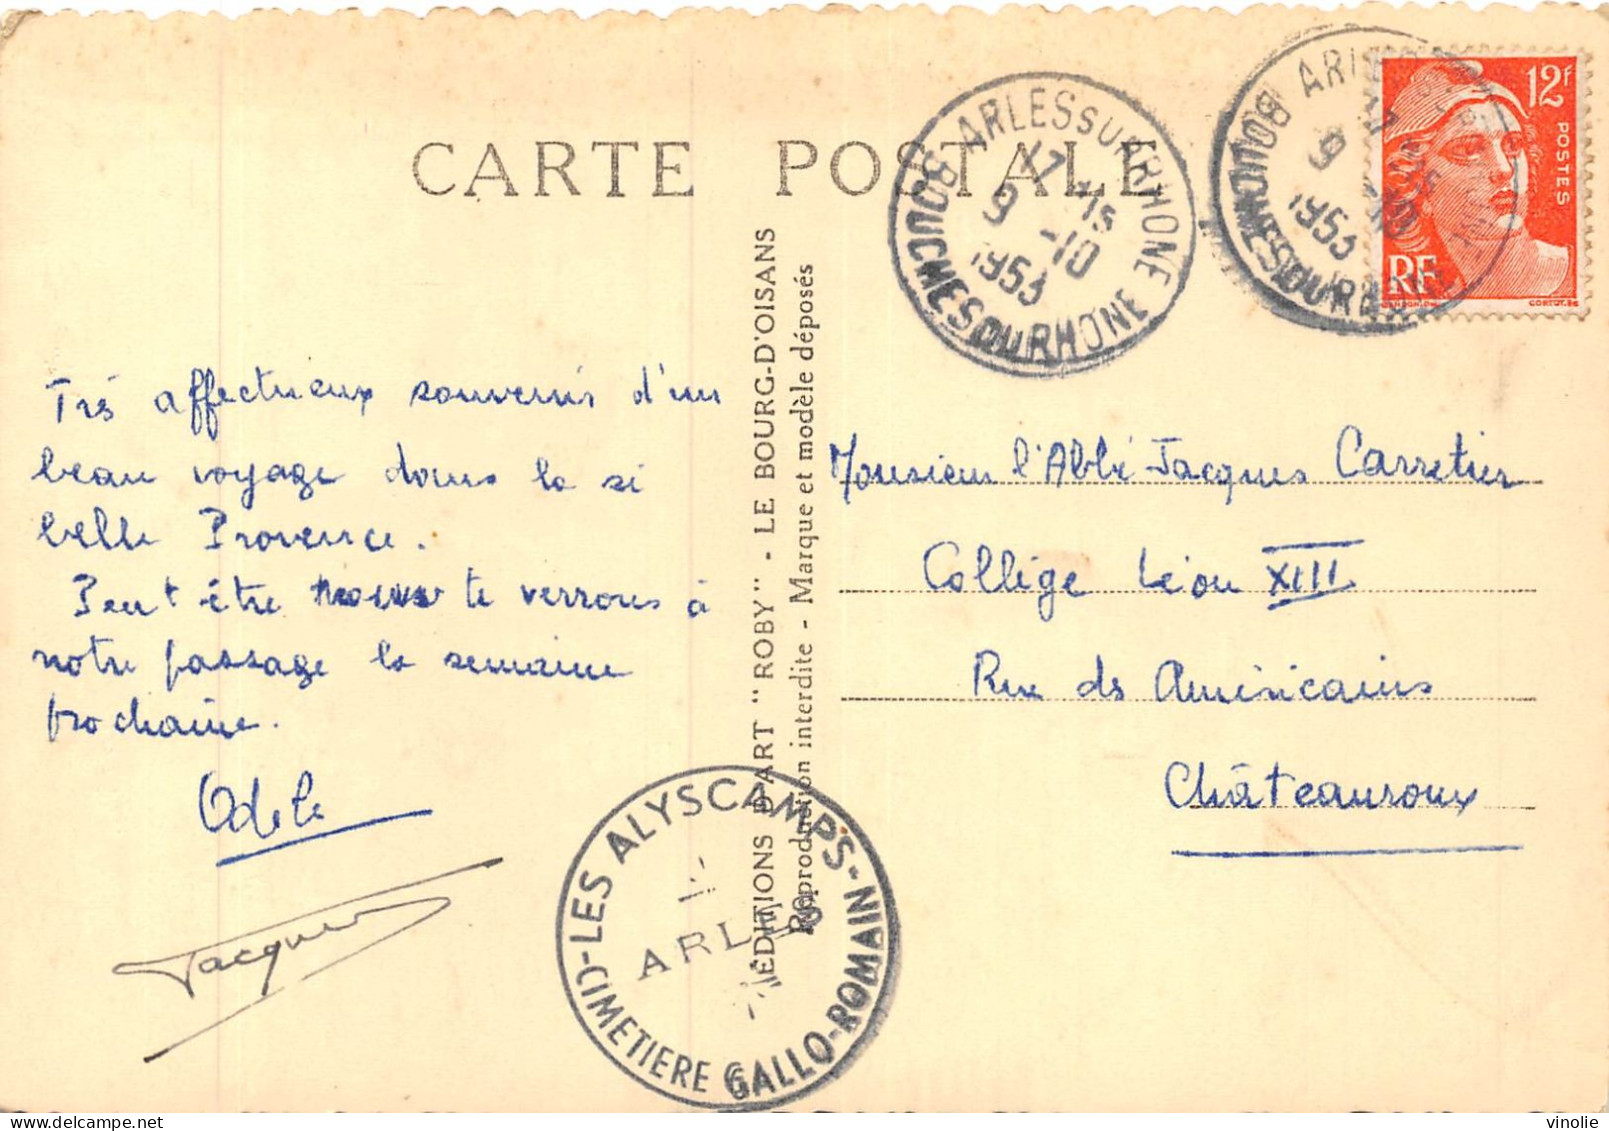 CARTE POSTALE
ARLES SUR RHONE
17 H 15
9 -10
1953
BOUCHES DU RHONE
12F
POSTES
RF
Très affectueux souvenir d'un
beau voyage dans la si
belle Provence.
Peut être nous te verrons à
notre passage la semaine
prochaine.
Odile
Jacques
ÉDITIONS D'ART "ROBY" - LE BOURG-D'OISANS
Reproduction interdite - Marque et modèle déposés
Monsieur l'Abbé Jacques Carretier
Collège Léon XIII
Rue des Américains
Châteauroux
LES ALYSCAMPS-
ARLES
(CIMETIERE GALLO-ROMAIN)
vinolie